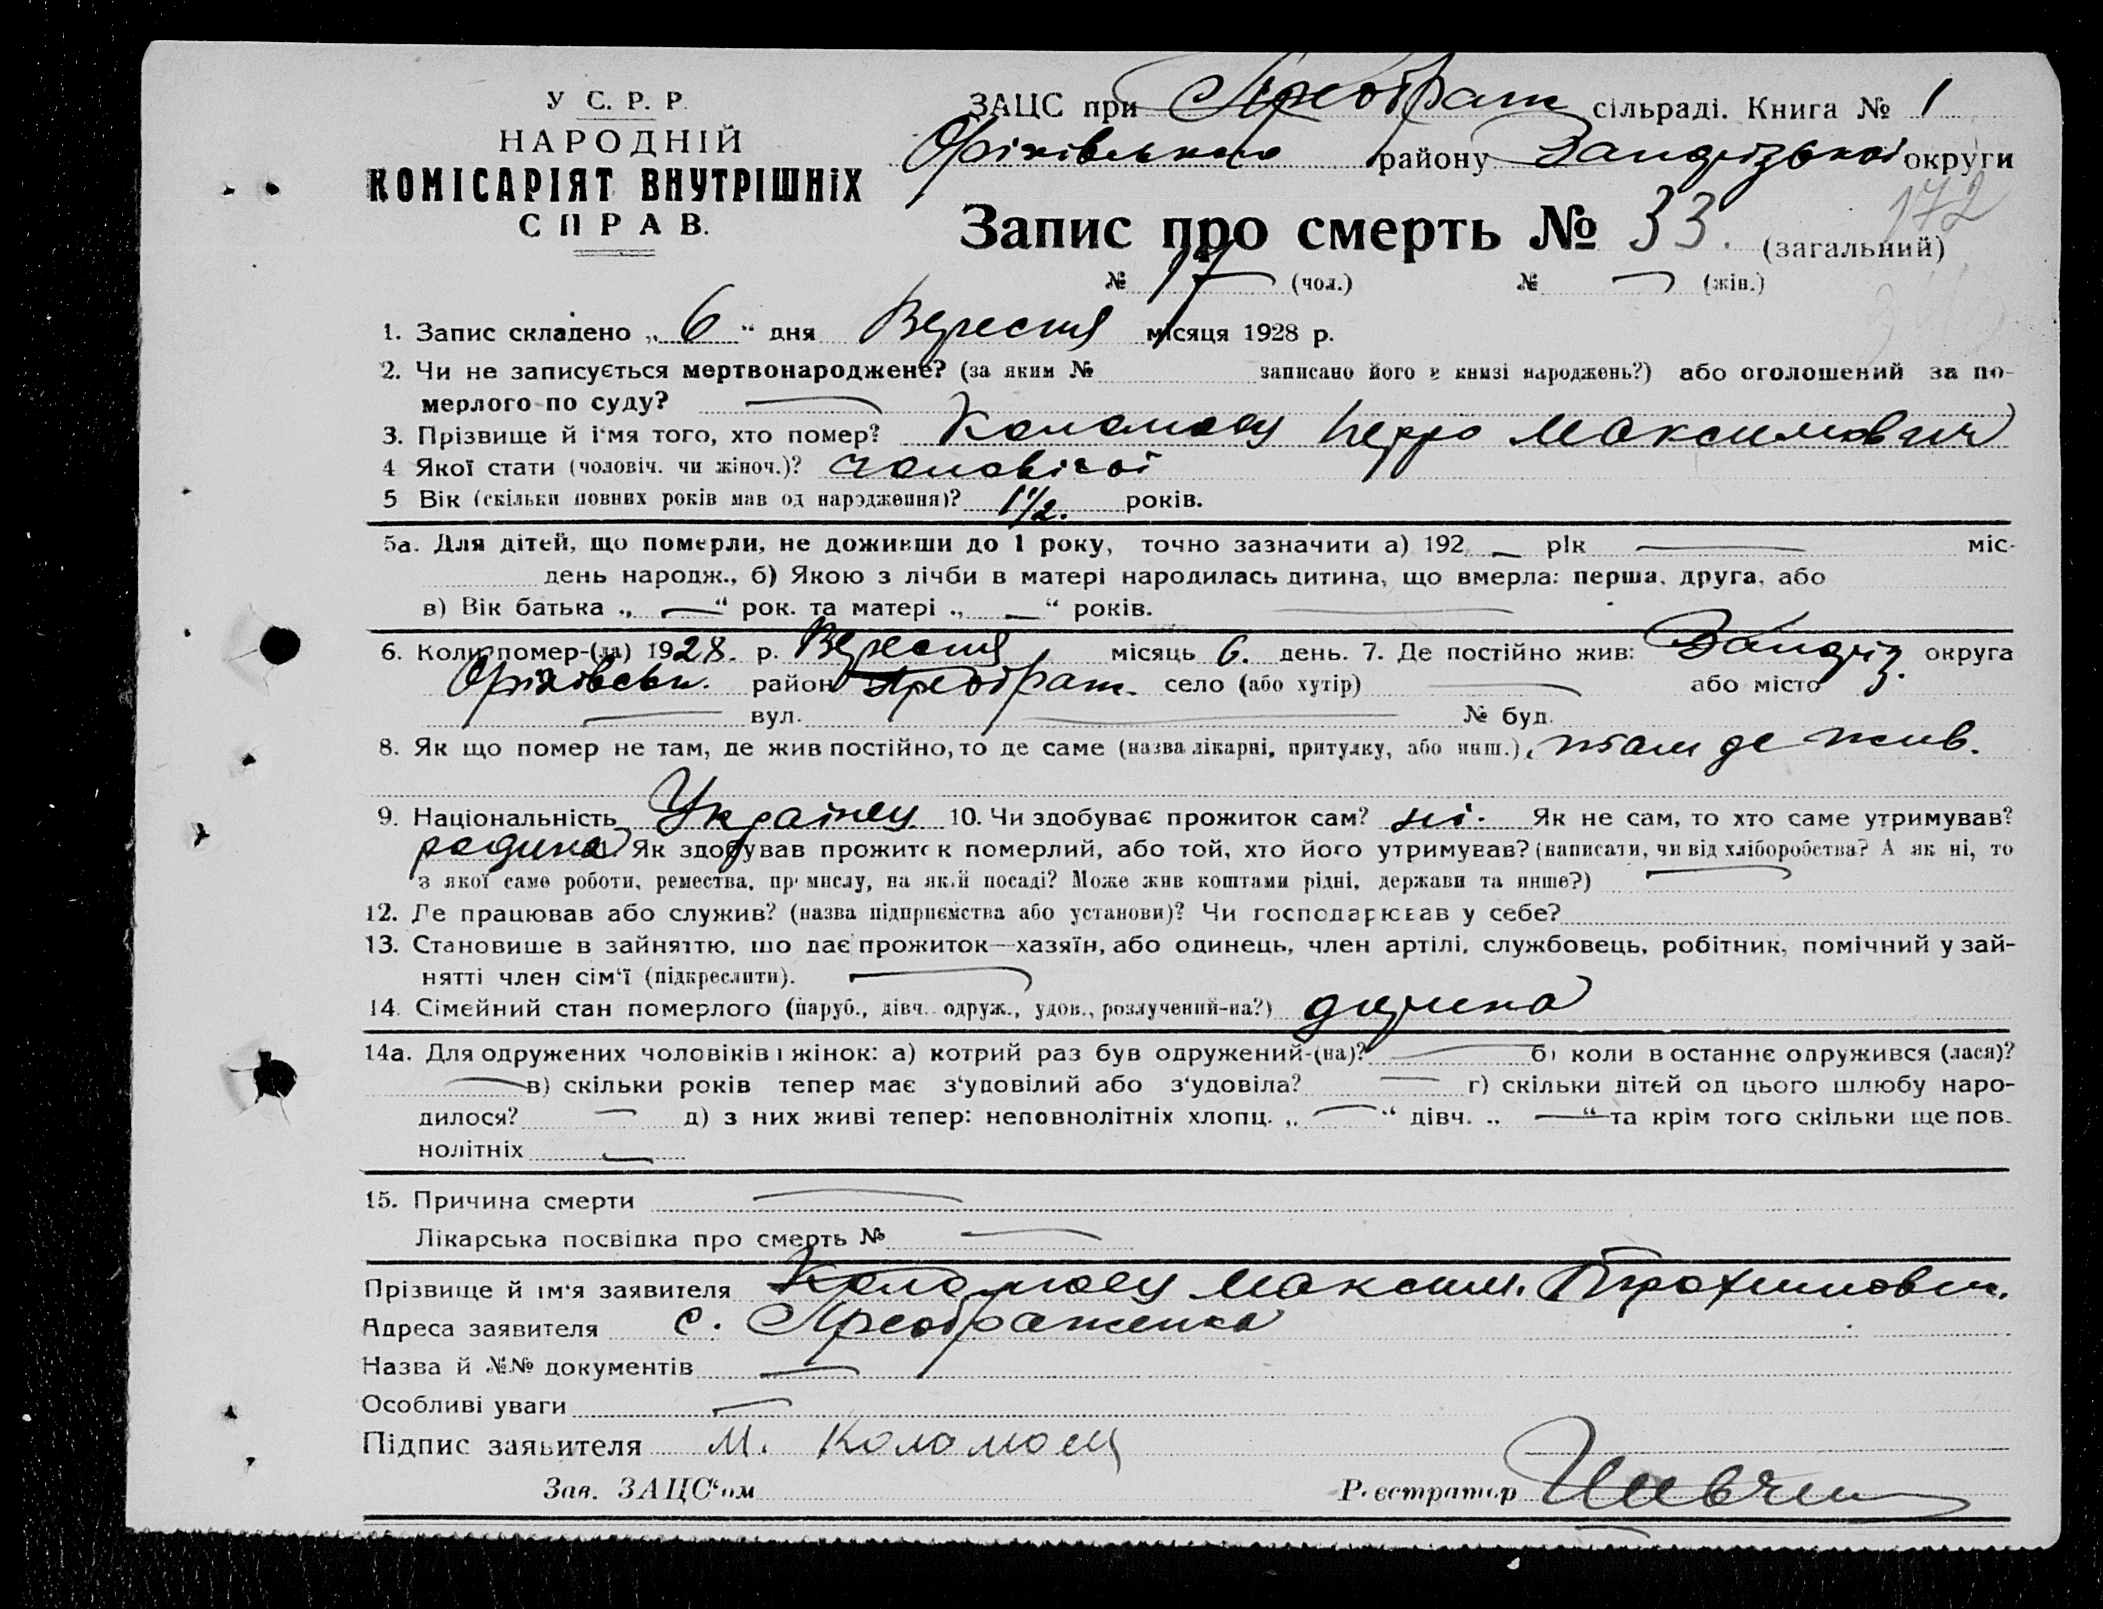 У С. Р. Р.
НАРОДНІЙ
КОМІСАРІЯТ ВНУТРІШНІХ
СПРАВ.
ЗАЦС при Преображ сільраді. Книга № 1
Оріхівського району Запорізької округи
172
Запис про смерть № 33. (загальний)
№ 17 (чол.) № — (жін.)
1. Запис складено „ 6 “ дня Вересня місяця 1928 р.
2. Чи не записується мертвонароджене? (за яким № записано його в книзі народжень?) або оголошений за по-
мерлого по суду? —
3. Прізвище й і'мя того, хто помер? Коломоец Петро Максимович
4 Якої стати (чоловіч. чи жіноч.)? чоловічої
5 Вік (скільки повних років мав од народження)? 1 1/2. років.
5а. Для дітей, що померли, не доживши до 1 року, точно зазначити а) 192 — рік — міс-
день народж., б) Якою з лічби в матері народилась дитина, що вмерла: перша, друга, або
в) Вік батька „ — “ рок. та матері „ — “ років. —
6. Коли помер-(ла) 1928. р. Вересня місяць 6. день. 7. Де постійно жив: Запоріз. округа
Оріхівськ. район Преображ. село (або хутір) — або місто
— вул. — № буд.
8. Як що помер не там, де жив постійно, то де саме (назва лікарні, притулку, або инш.) там де жив.
9. Національність Українец 10. Чи здобуває прожиток сам? ні. Як не сам, то хто саме утримував?
родина Як здобував прожиток померлий, або той, хто його утримував? (написати, чи від хліборобства? А як ні, то
з якої саме роботи, ремества, промислу, на якій посаді? Може жив коштами рідні, держави та инше?) —
12. Де працював або служив? (назва підприємства або установи)? Чи господарював у себе?
13. Становище в зайняттю, що дає прожиток—хазяїн, або одинець, член артілі, службовець, робітник, помічний у зай-
нятті член сім'ї (підкреслити). —
14. Сімейний стан померлого (паруб., дівч. одруж., удов., розлучений-на?) дитина
14а. Для одружених чоловіків і жінок: а) котрий раз був одружений-(на)? — б) коли в останнє одружився (лася)?
— в) скільки років тепер має з'удовілий або з'удовіла? — г) скільки дітей од цього шлюбу наро-
дилося? — д) з них живі тепер: неповнолітніх хлопц. „ — “ дівч. „ — “ та крім того скільки ще пов.
нолітніх —
15. Причина смерти —
Лікарська посвідка про смерть № —
Прізвище й ім'я заявителя Коломоец Максим. Трохимович.
Адреса заявителя с. Преображенка
Назва й №№ документів —
Особливі уваги —
Підпис заявителя М. Коломоец
Зав. ЗАЦС'ом Реєстратор